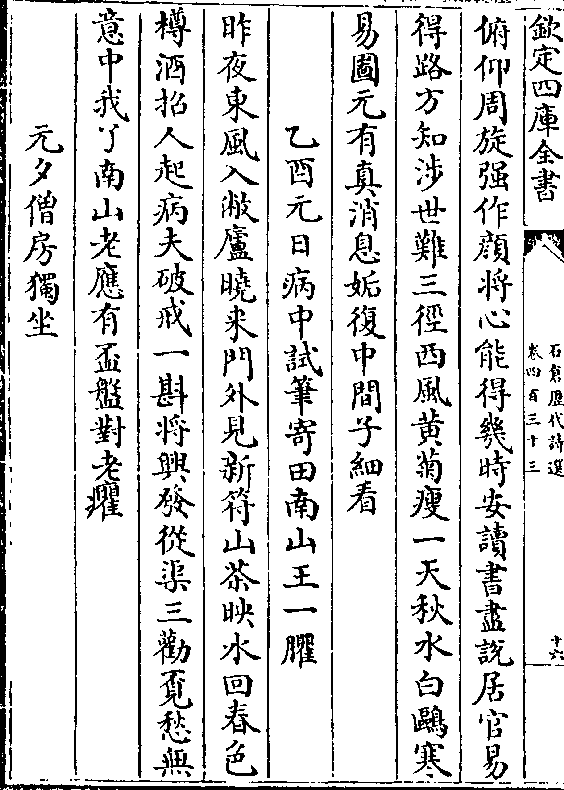 欽定四庫全書
石倉歷代詩選
卷四百三十三
十六
俯仰周旋强作顔將心能得幾時安讀書盡說居官易
得路方知涉世難三徑西風黄菊瘦一天秋水白鷗寒
易圖元有真消息姤復中間子細看
乙酉元日病中試筆寄田南山王一臞
昨夜東風入敝廬曉来門外見新符山茶映水回春色
樽酒招人起病夫破戒一斟將興發從渠三勸覔愁無
意中我丫南山老應有盃盤對老臞
元夕僧房獨坐